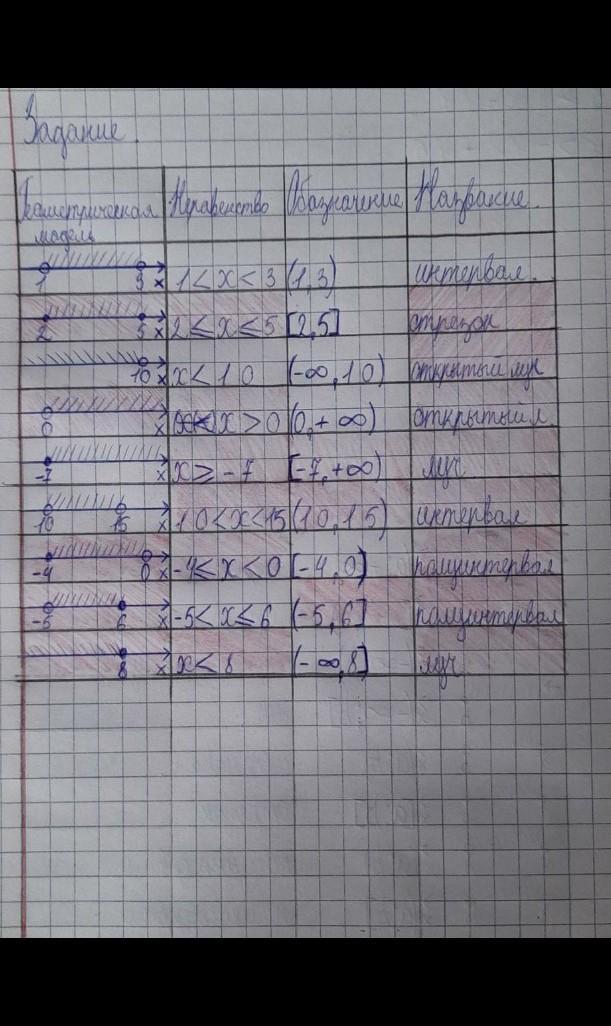 Задание.
Геометрическая модель Неравенство Обозначение Название.
1 3 x 1 < x < 3 (1,3) интервал.
2 5 x 2 ≤ x ≤ 5 [2,5] отрезок
10 x x < 10 (-∞,10) открытый луч
0 x x > 0 (0,+∞) открытый л.
-7 x x ≥ -7 [-7,+∞) луч
10 15 x 10<x<15 (10,15) интервал
-4 0 x -4≤x<0 [-4,0) полуинтервал
-5 6 x -5<x≤6 (-5,6] полуинтервал
8 x x< 8 (-∞,8] луч